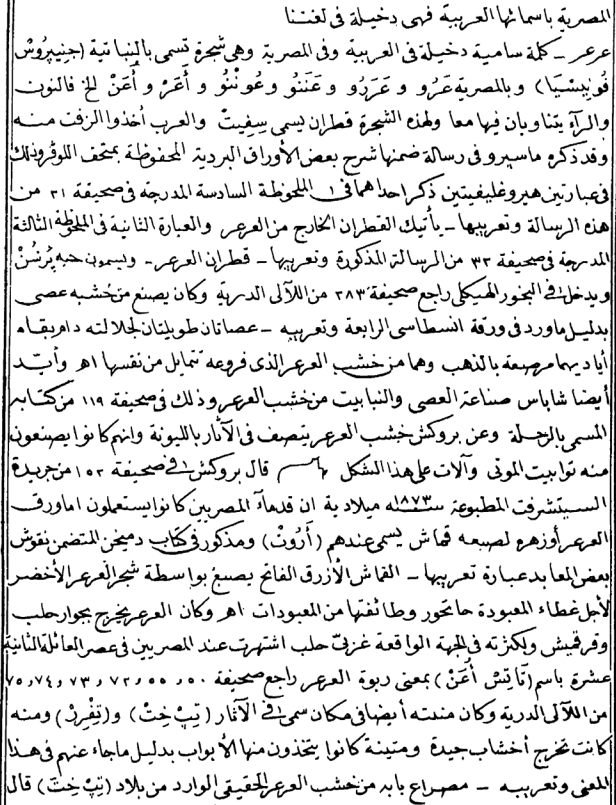 المصرية باسمائها العربية فهى دخيلة فى لغتنا
عرعر ـ كلمة سامية دخيلة فى العربية وفى المصرية وهى شجرة تسمى بالنباتية (جنيبِروُسْ
فُونِيسْيَا) وبالمصرية عَرُو و عَرَرُو و عَنَنُو وعُونْنُو و أَعَرْ و أُعَنْ الخ فالنون
والرآء يتناوبان فيها معا ولهذه الشجرة قطران يسمى سِفِيتْ والعرب أخذوا الزفت منه
وقد ذكره ماسپرو فى رسالة ضمنها شرح بعض الأوراق البردية المحفوظة بمتحف اللوفر وذلك
فى عبارتين هيروغليفيتين ذكر احداهما فى ١ الملحوظة السادسة المدرجة فى صحيفة ٣١ من
هذه الرسالة وتعريبها ـ يأتيك القطران الخارج من العرعر والعبارة الثانية فى الملحوظة الثالثة
المدرجة فى صحيفة ٣٣ من الرسالة المذكورة وتعريبها ـ قطران العرعر ـ ويسمون حبه پُرشُنْ
ويدخل فى البخور الهيكلى راجع صحيفة ٢٨٣ من اللآلى الدرية وكان يصنع من خشبه عصى
بدليل ماورد فى ورقة انسطاسى الرابعة وتعريبه ـ عصاتان طويلتان لجلالته دام بقاه
أياديهما مرصعة بالذهب وهما من خشب العرعر الذى فروعه تتمايل من نفسها اهـ وأيد
أيضا شاباس صناعة العصى والنبابيت من خشب العرعر وذلك فى صحيفة ١١٩ من كتابه
المسمى بالرحلة وعن بروكش خشب العرعر يتصف فى الآثار بالليونة وانهم كانوا يصنعون
منه توابيت الموتى وآلات على هذا الشكل قال بروكش فى صحيفة ١٥٢ من جريدة
السيتشرفت المطبوعة سنة ١٨٧٣ ميلادية ان قدمآء المصريين كانوا يستعملون اما ورق
العرعر أوزهره لصبغه قماش يسمى عندهم (أَرُونْ) ومذكور فى كتاب دميخن المتضمن نقوش
بعض المعابد عبارة تعريبها ـ القماش الأزرق الفاتح يصبغ بواسطة شجر العرعر الأخضر
لأجل غطاء المعبودة حاتحور وطائفتها من المعبودات اهـ وكان العرعر يخرج بجوار حلب
وقرقميش ولكثرته فى الجهة الواقعة غربىّ حلب اشتهرت عند المصريين فى عصر العائلة الثانية
عشرة باسم (تَاتِنْ أُعَنْ) بمعنى ربوة العرعر راجع صحيفة ٥٠ ، ٥٥ ، ٧٢ ، ٧٣ ، ٧٤ ، ٧٥
من اللآلى الدرية وكان منبته أيضا فى مكان سمى فى الآثار (تِيپْ خِتْ) و (تِفْرِرْ) ومنه
كانت تخرج أخشاب جيدة ومتينة كانوا يتخذون منها الأبواب بدليل ماجاء عنهم فى هذا
المعنى وتعريبه ـ مصراع بابه من خشب العرعر الحقيقى الوارد من بلاد (تِپْ خِتْ) قال